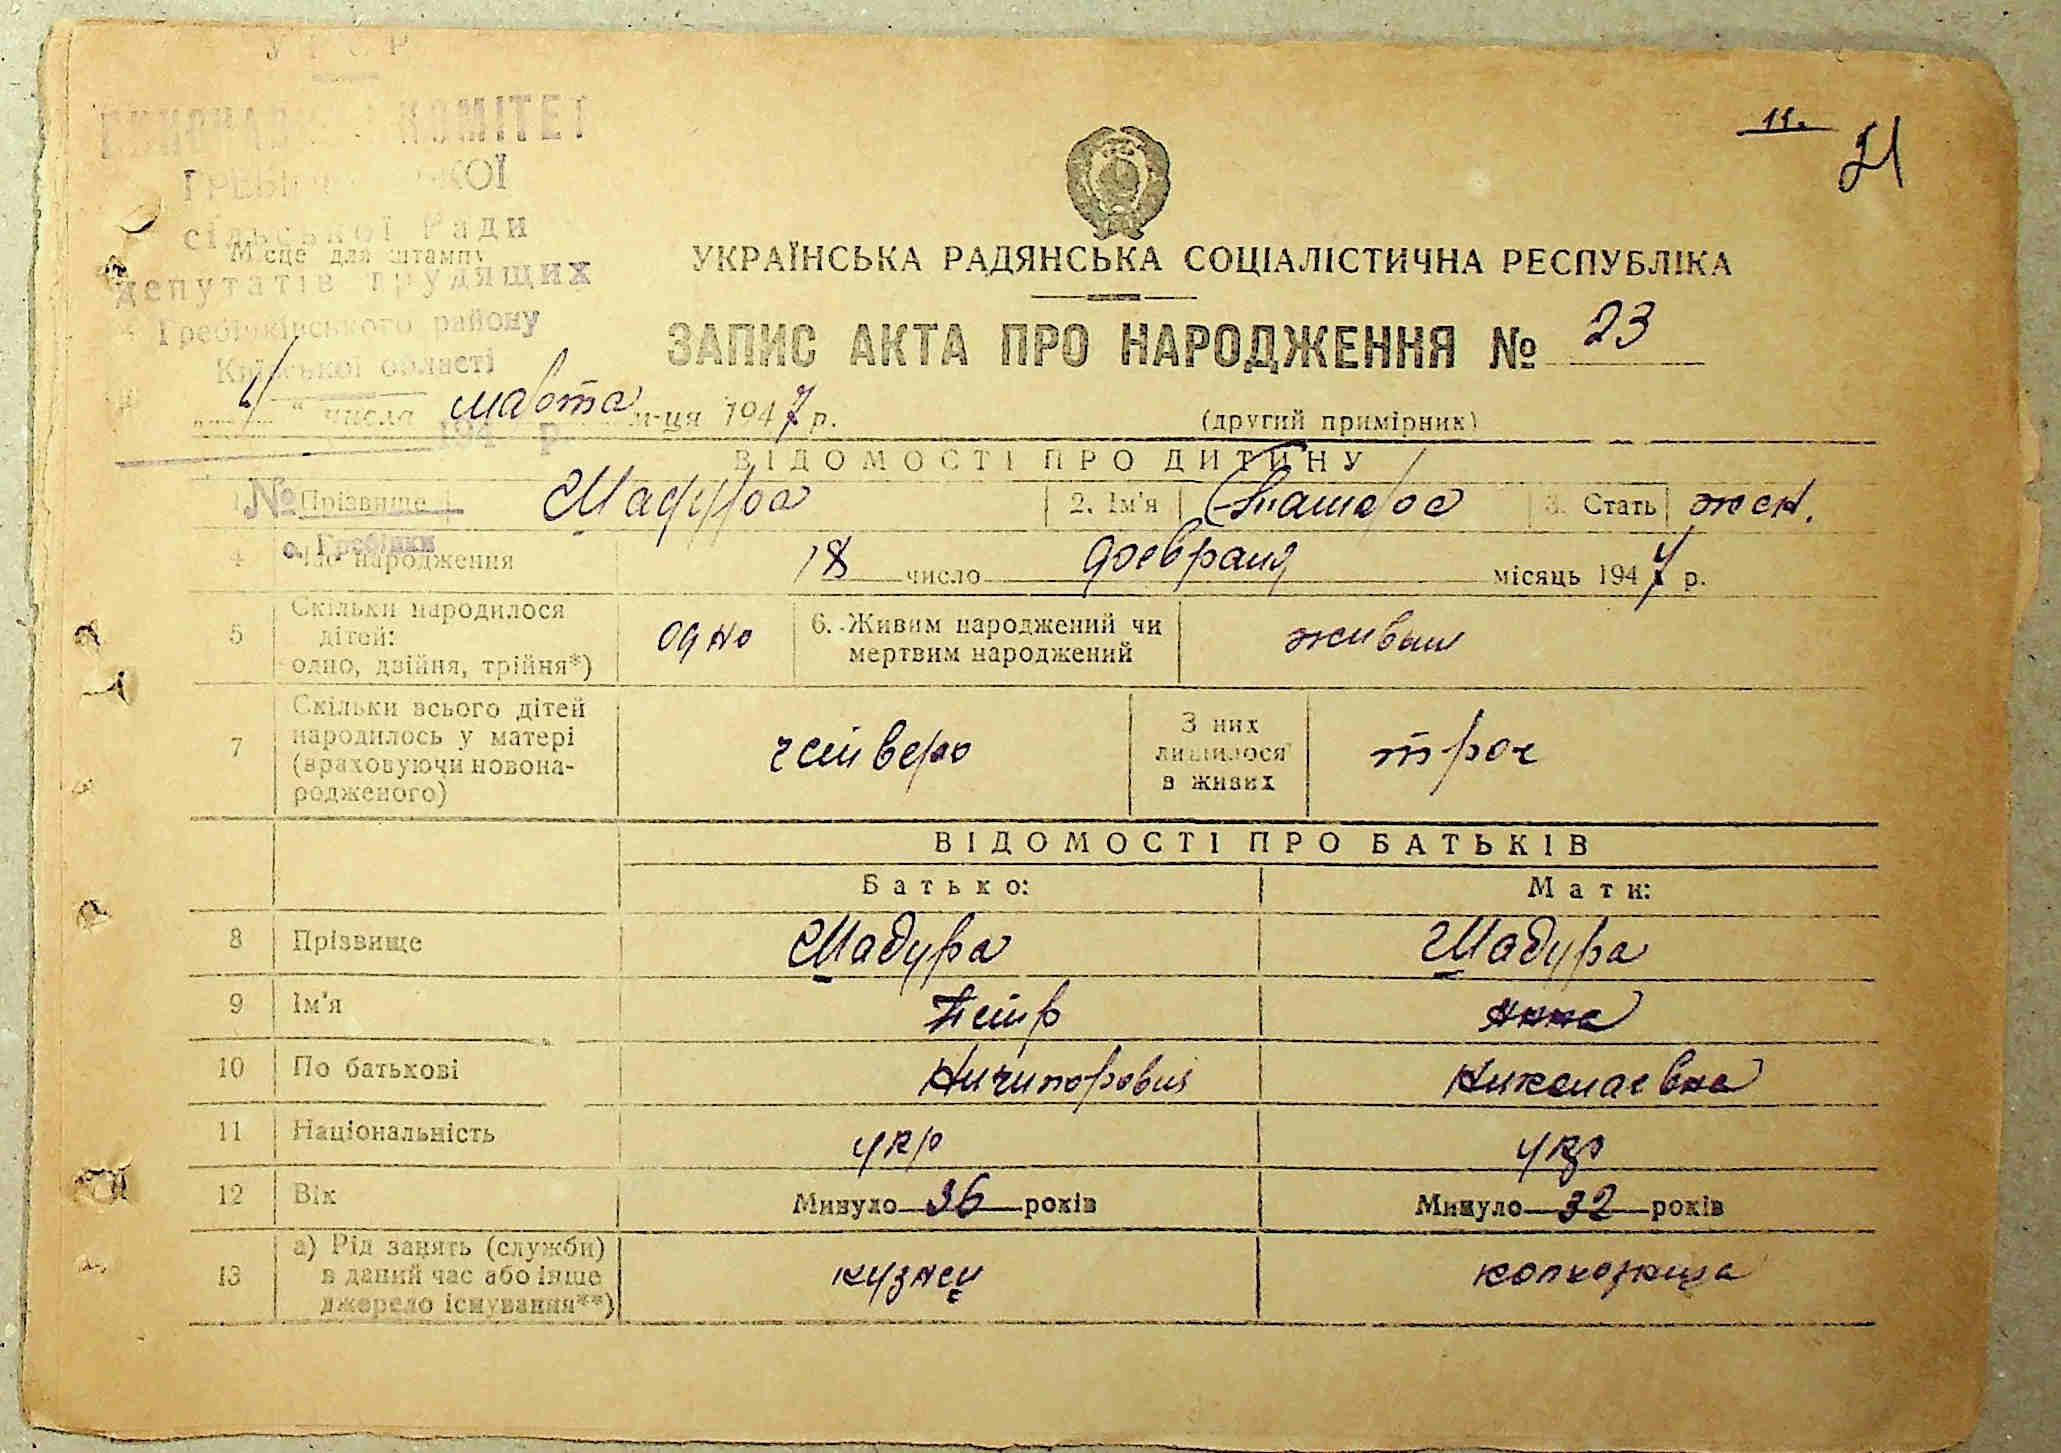 УРСР
ВИКОНАВЧИЙ КОМІТЕТ
ГРЕБІНКІВСЬКОЇ
сільської Ради
Місце для штампу
депутатів трудящих
Гребінківського району
Київської області
11.
21
УКРАЇНСЬКА РАДЯНСЬКА СОЦІАЛІСТИЧНА РЕСПУБЛІКА
ЗАПИС АКТА ПРО НАРОДЖЕННЯ № 23
„4“ числа марта м-ця 1947 р.
194 р.
(другий примірник)
ВІДОМОСТІ ПРО ДИТИНУ
1 № Прізвище Шадура 2. Ім'я Тамара 3. Стать жен.
с. Гребінки
4 Час народження 18 число февраля місяць 1947 р.
5 Скільки народилося дітей: одно, двійня, трійня*) одно 6. Живим народжений чи мертвим народжений живым
7 Скільки всього дітей народилось у матері (враховуючи новонародженого) четверо З них лишилося в живих трое
ВІДОМОСТІ ПРО БАТЬКІВ
Батько: Мати:
8 Прізвище Шадура Шадура
9 Ім'я Петр Анна
10 По батькові Ничипорович Николаевна
11 Національність укр укр
12 Вік Минуло 36 років Минуло 32 років
13 а) Рід занять (служби) в даний час або інше джерело існування**) кузнец колхозница